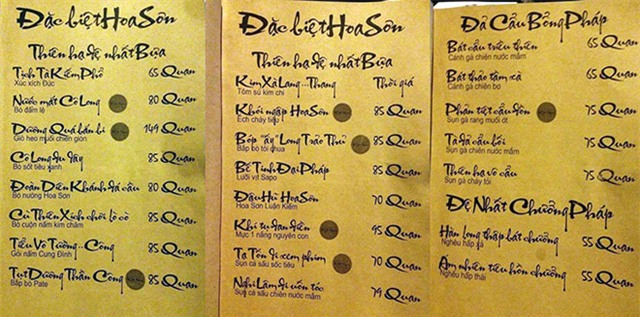 Đặc biệt Hoa Sơn
Thiên hạ đệ nhất Bựa
Tịch Tà Kiếm Phổ 65 Quan
Xúc xích Đức
Nước mắt Cô Long 80 Quan
Bò đấm lệ
Dương Quá bán bi 149 Quan
Giò heo muối chiên giòn
Cô Long du dây 85 Quan
Bò sốt tiêu xanh
Đoàn Diên Khánh đá cầu 80 Quan
Bò nướng Hoa Sơn
Cù Thiên Xích chơi lò cò 85 Quan
Bò cuộn nấm kim châm
Tiểu Vô Tướng...Công 85 Quan
Gỏi nấm Cung Đình
Tụt Dương Thần Công 85 Quan
Bắp bò Pate
Đặc biệt Hoa Sơn
Thiên hạ đệ nhất Bựa
Kim Xà Lang...Thang Thời giá
Tôm sú kim chi
Khói ngập Hoa Sơn 85 Quan
Ếch cháy tiếp
Bóp "ấy" Long Trảo Thủ 85 Quan
Bắp bò tỏi chua
Bế Tinh Đại Pháp 85 Quan
Lưỡi vịt Sapo
Đậu Hũ Hoa Sơn 70 Quan
Hoa Sơn Luận Kiếm
Khỉ tự đan điền 95 Quan
Mực 1 nắng nguyên con
Tạ Tốn đi xem phim 70 Quan
Sụn cá sấu sốc tiêu
Nghi Lâm đi uốn tóc 79 Quan
Sụn cá sấu chiên nước mắm
Đả Cẩu Bổng Pháp
Bát cẩu triều thiên 65 Quan
Cánh gà chiên nước mắm
Bát thảo tầm xà 65 Quan
Cánh gà chiên bơ
Phản tiệt cẩu đồn 75 Quan
Sụn gà rang muối ớt
Tà đả cẩu bối 75 Quan
Sụn gà chiên nước mắm
Thiên hạ vô cẩu 75 Quan
Sụn gà cháy tỏi
Đệ Nhất Chưởng Pháp
Hàn long thập bát chưởng 55 Quan
Nghêu hấp xả
Ám nhiên tiêu hồn chưởng 55 Quan
Nghêu hấp thái